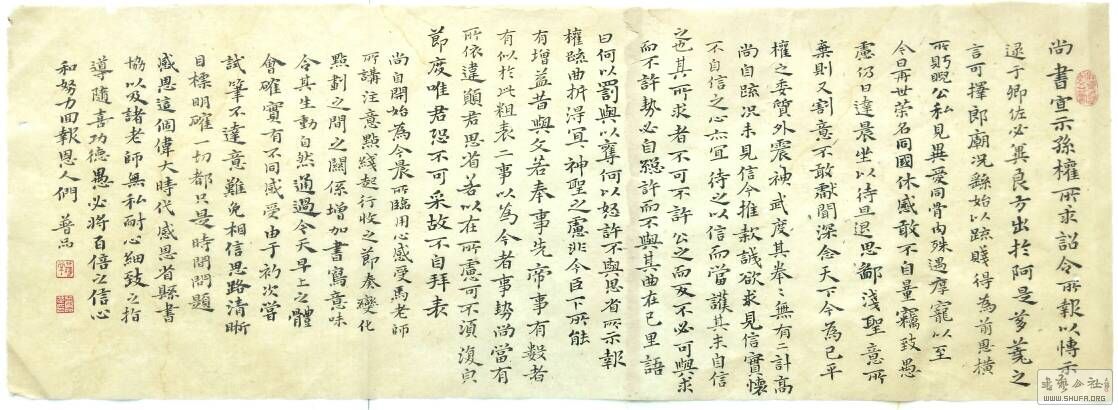 尚書宣示孫權所求詔令所報以博示
逮于卿佐必冀良方出於阿是芻蕘之
言可擇郎廟況繇始以疏賤得為前恩橫
所眄睨公私見異愛同骨肉殊遇厚寵以至
今日再世榮名同國休慼敢不自量竊致愚
慮仍日達晨坐以待旦退思鄙淺聖意所
棄則又割意不敢獻聞深念天下今為已平
權之委質外震神武度其拳々無有二計高
尚自疏況未見信今推款誠欲求見信實懷
不自信之心亦宜待之以信而當護其未自信
之也其所求者不可不許々之而反不必可與求
而不許勢必自絕許而不與其曲在已里語
曰何以罰與以奪何以怒許不與思省所示報
權疏曲折得宜神聖之慮非今臣下所能
有增益昔與文若奉事先帝事有數者
有似於此粗表二事以為今者事勢尚當有
所依違願君思省若以在所慮可不須復貞
節度唯君恐不可采故不自拜表
尚自開始為今晨所臨用心感受馬老師
所講注意點綫起行收之節奏變化
點劃之間之關係增加書寫意味
令其生動自然通過今天早上之體
會確實有不同感受由于初次嘗
試筆不達意難免相信思路清晰
目標明確一切都只是時間問題
感恩這個偉大時代感恩省縣書
協以及諸老師無私耐心細致之指
導隨喜功德愚必將百倍之信心
和努力回報恩人們 普
書藝公社
WWW.SHUFA.ORG